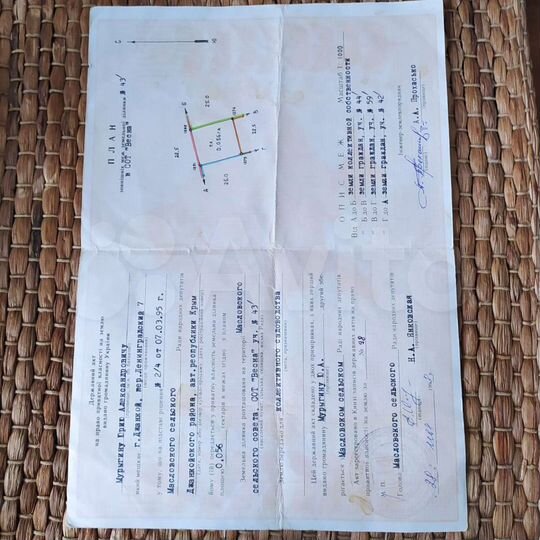 Державний акт
на право приватної власності на землю
видано громадянину України
Мурыгину Юрию Александровичу
г.Джанкой, пер.Ленинградский 7
у тому, що на підставі рішення № 2/4 от 07.03.95 г.
Масловского сельского
Ради народних депутатів
Джанкойского района, авт.республики Крым
йому (їй) передається у приватну власність земельна ділянка
площею 0,056 гектарів в межах згідно з планом.
Земельна ділянка розташована на території Масловского
сельского совета СОТ "Весна" уч.№ 43
коллективного садоводства
Цей державний акт складено у двох примірниках, з яких перший
видано громадянину Мурыгину Ю.А. другий збе-
рігається Масловском сельском Раді народних депутатів
Акт зареєстровано в Книзі записів державних актів на право
приватної власності на землю за № 28
М. П.
Масловского сельского Ради народних депутатів
Голова Н.А. Янковская
ПЛАН
зовнішніх меж земельної ділянки № 43
в СОТ "Весна"
С
Ю
А
Б
В
Г
22.5
25.0
22.5
25.0
0.056га
ОПИС МЕЖ
Масштаб 1: 1000
Від А до Б земли коллективной собственности
" Б до В земли граждан, уч. № 44
" В до Г земли граждан, уч. № 59
" Г до А земли граждан, уч. № 42
Інженер-землевпорядник
А.А. Протасько